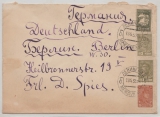 Германия
Deutschland.
Берлин Berlin
W. 50.
Heilbronnerstr. 13
Frl. D. Spies.